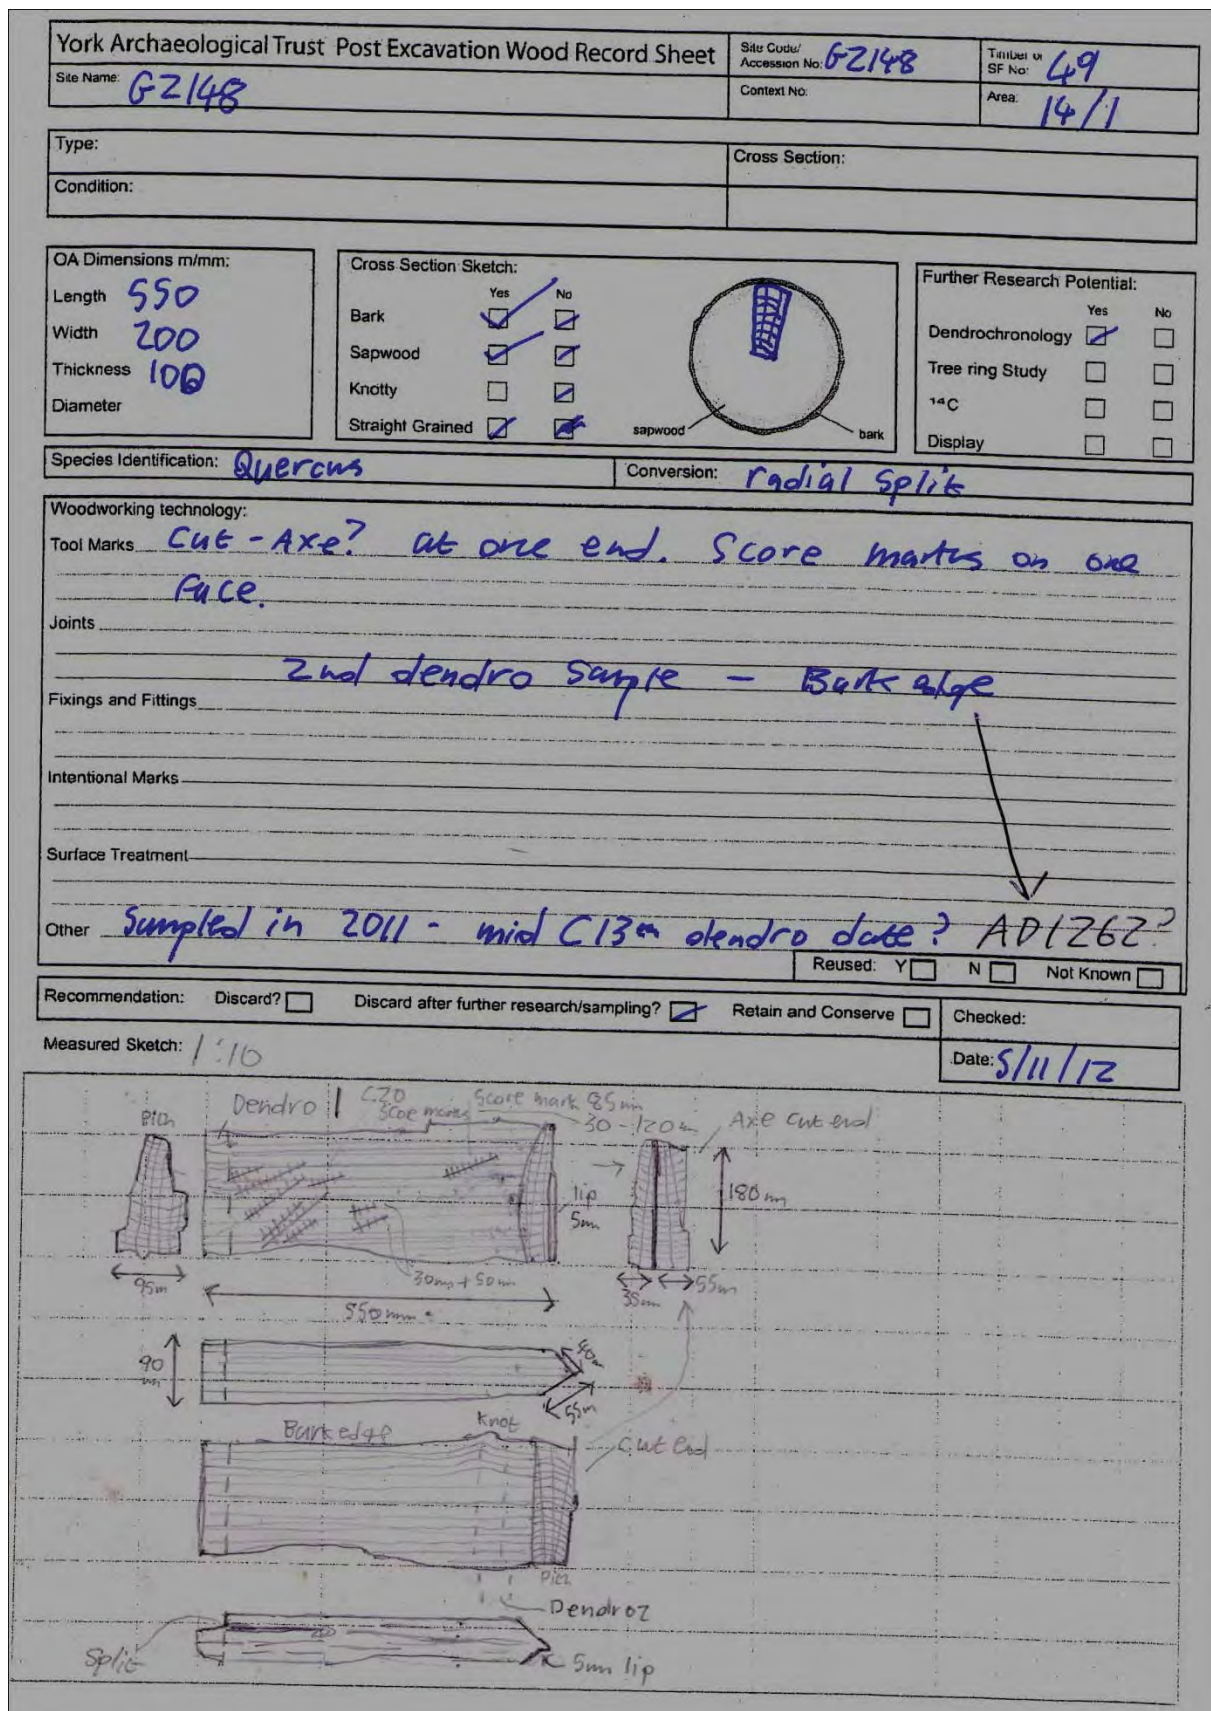 York Archaeological Trust Post Excavation Wood Record Sheet
Site Code/ Accession No: GZ148
Timber or SF No: 49
Site Name: GZ148
Context No:
Area: 14/1
Type:
Cross Section:
Condition:
OA Dimensions m/mm:
Length 550
Width 200
Thickness 100
Diameter
Cross Section Sketch:
Yes No
Bark
Sapwood
Knotty
Straight Grained
sapwood
bark
Further Research Potential:
Yes No
Dendrochronology
Tree ring Study
14C
Display
Species Identification: Quercus
Conversion: radial split
Woodworking technology:
Tool Marks Cut - Axe? at one end. Score marks on one
face.
Joints
2nd dendro Sample - Bark edge
Fixings and Fittings
Intentional Marks
Surface Treatment
Other Sampled in 2011 - mid C13th dendro date? AD1262?
Reused: Y N Not Known
Recommendation: Discard? Discard after further research/sampling? Retain and Conserve
Checked:
Measured Sketch: 1:10
Date: 5/11/12
Pith
Dendro 1
C20
Score marks
Score mark 85mm
30-120m
Axe cut end
lip
5mm
180mm
95m
30mm + 50m
35m
55m
550mm
90
mm
40m
55m
Bark edge
Knot
Cut end
Pith
Dendro 2
Split
5mm lip